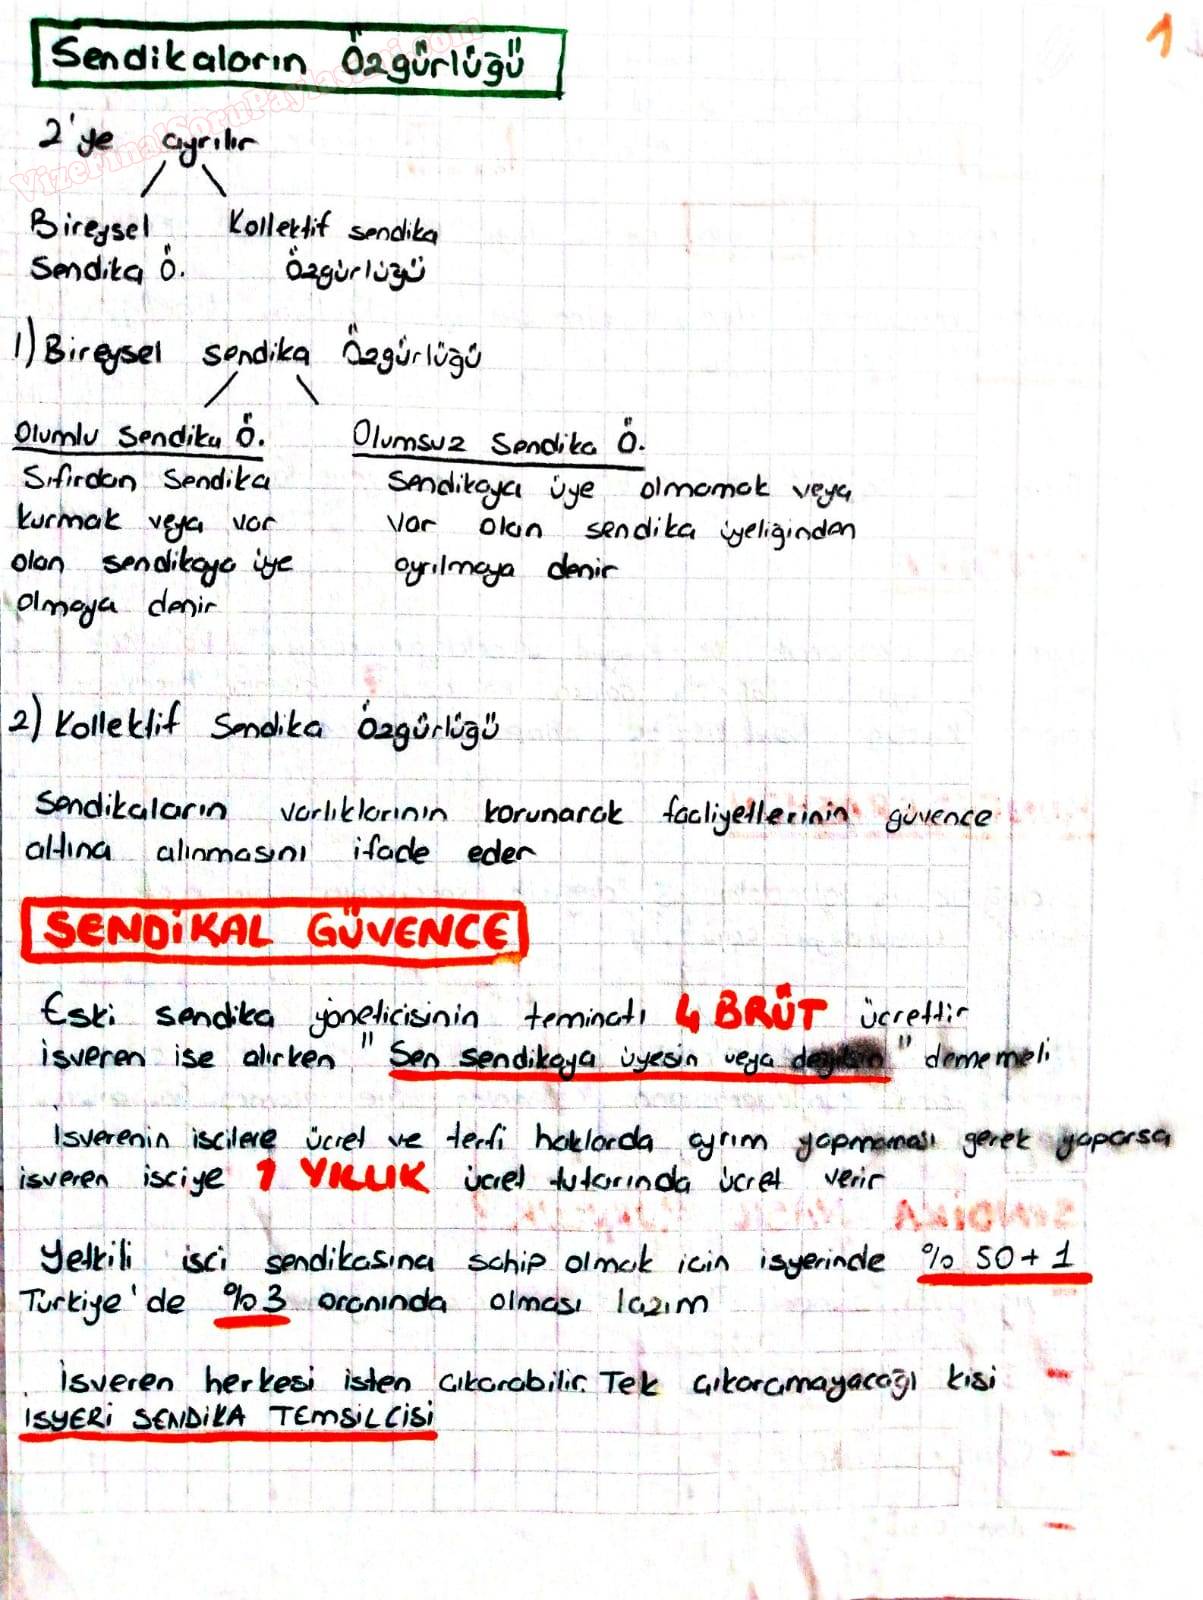 Sendikaların Özgürlüğü
1
VizeFinalSoruPaylasimi.com
2'ye ayrılır
Bireysel Kollektif sendika
Sendika Ö. Özgürlüğü
1) Bireysel sendika Özgürlüğü
Olumlu Sendika Ö. Olumsuz Sendika Ö.
Sıfırdan Sendika Sendikaya üye olmamak veya
kurmak veya var var olan sendika üyeliğinden
olan sendikaya üye ayrılmaya denir
olmaya denir
2) Kollektif Sendika Özgürlüğü
Sendikaların varlıklarının korunarak faaliyetlerinin güvence
altına alınmasını ifade eder
SENDİKAL GÜVENCE
Eski sendika yöneticisinin teminatı 4 BRÜT ücrettir
isveren ise alırken " Sen sendikaya üyesin veya " dememeli
İsverenin iscilere ücret ve terfi haklarda ayrım yapmaması gerek yaparsa
isveren isciye 1 YILLIK ücret tutarında ücret verir
Yetkili isci sendikasına sahip olmak icin isyerinde %50+1
Türkiye'de %3 oranında olması lazım
İsveren herkesi isten cıkarabilir. Tek cıkaramayacağı kisi
ISYERİ SENDİKA TEMSİLCİSİ